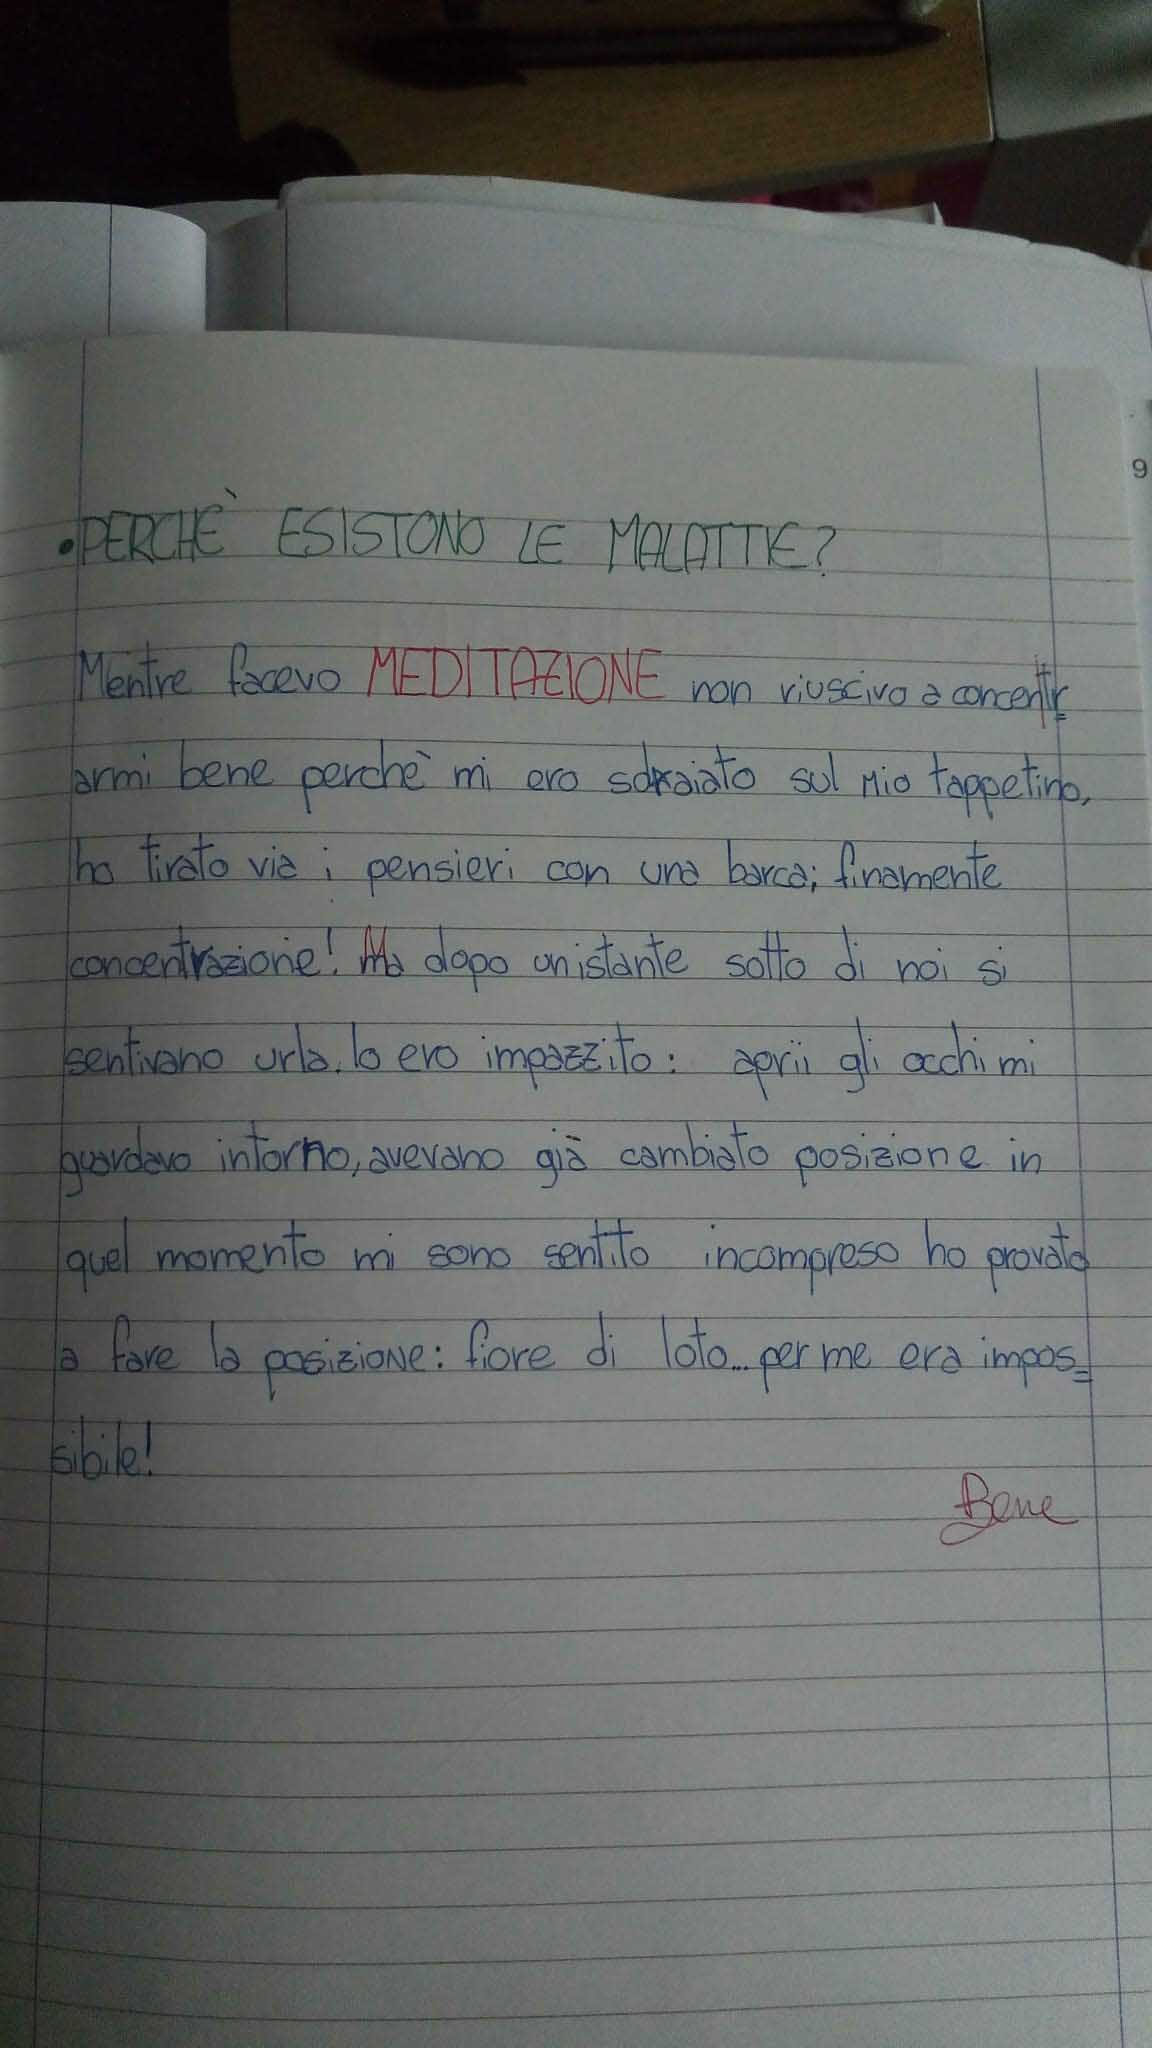 • PERCHÈ ESISTONO LE MALATTIE?
Mentre facevo MEDITAZIONE non riuscivo a concentr=
armi bene perchè mi ero sdraiato sul mio tappetino,
ho tirato via i pensieri con una barca; finamente
concentrazione! Ma dopo un istante sotto di noi si
sentivano urla. Io ero impazzito: aprii gli occhi mi
guardavo intorno, avevano già cambiato posizione in
quel momento mi sono sentito incompreso ho provato
a fare la posizione: fiore di loto... per me era impos=
sibile!
Bene
9